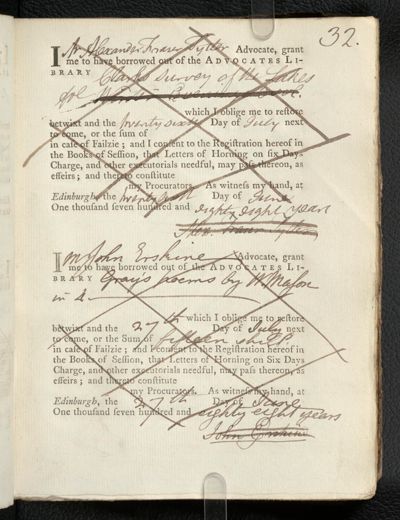 32.
I Mr Alexander Fraser Tytler Advocate, grant
me to have borrowed out of the ADVOCATES LI-
BRARY Clark's Survey of the Lakes
which I oblige me to restore
betwixt and the twenty sixth Day of July next
to come, or the sum of
in case of Failzie; and I consent to the Registration hereof in
the Books of Session, that Letters of Horning on six Days
Charge, and other executorials needful, may pass thereon, as
effeirs; and thereto constitute
my Procurators. As witness my hand, at
Edinburgh, the Day of June
One thousand seven hundred and eighty eight years
Alexr. Fraser Tytler
I Mr John Erskine Advocate, grant
me to have borrowed out of the ADVOCATES LI-
BRARY Grays poems by W. Mason
in 4.
which I oblige me to restore
betwixt and the 27th Day of July next
to come, or the Sum of fifteen shill
in case of Failzie; and I consent to the Registration hereof in
the Books of Session, that Letters of Horning on Six Days
Charge, and other executorials needful, may pass thereon, as
effeirs; and thereto constitute
my Procurators. As witness my hand, at
Edinburgh, the 27th Day of June
One thousand seven hundred and eighty eight years
John Erskine